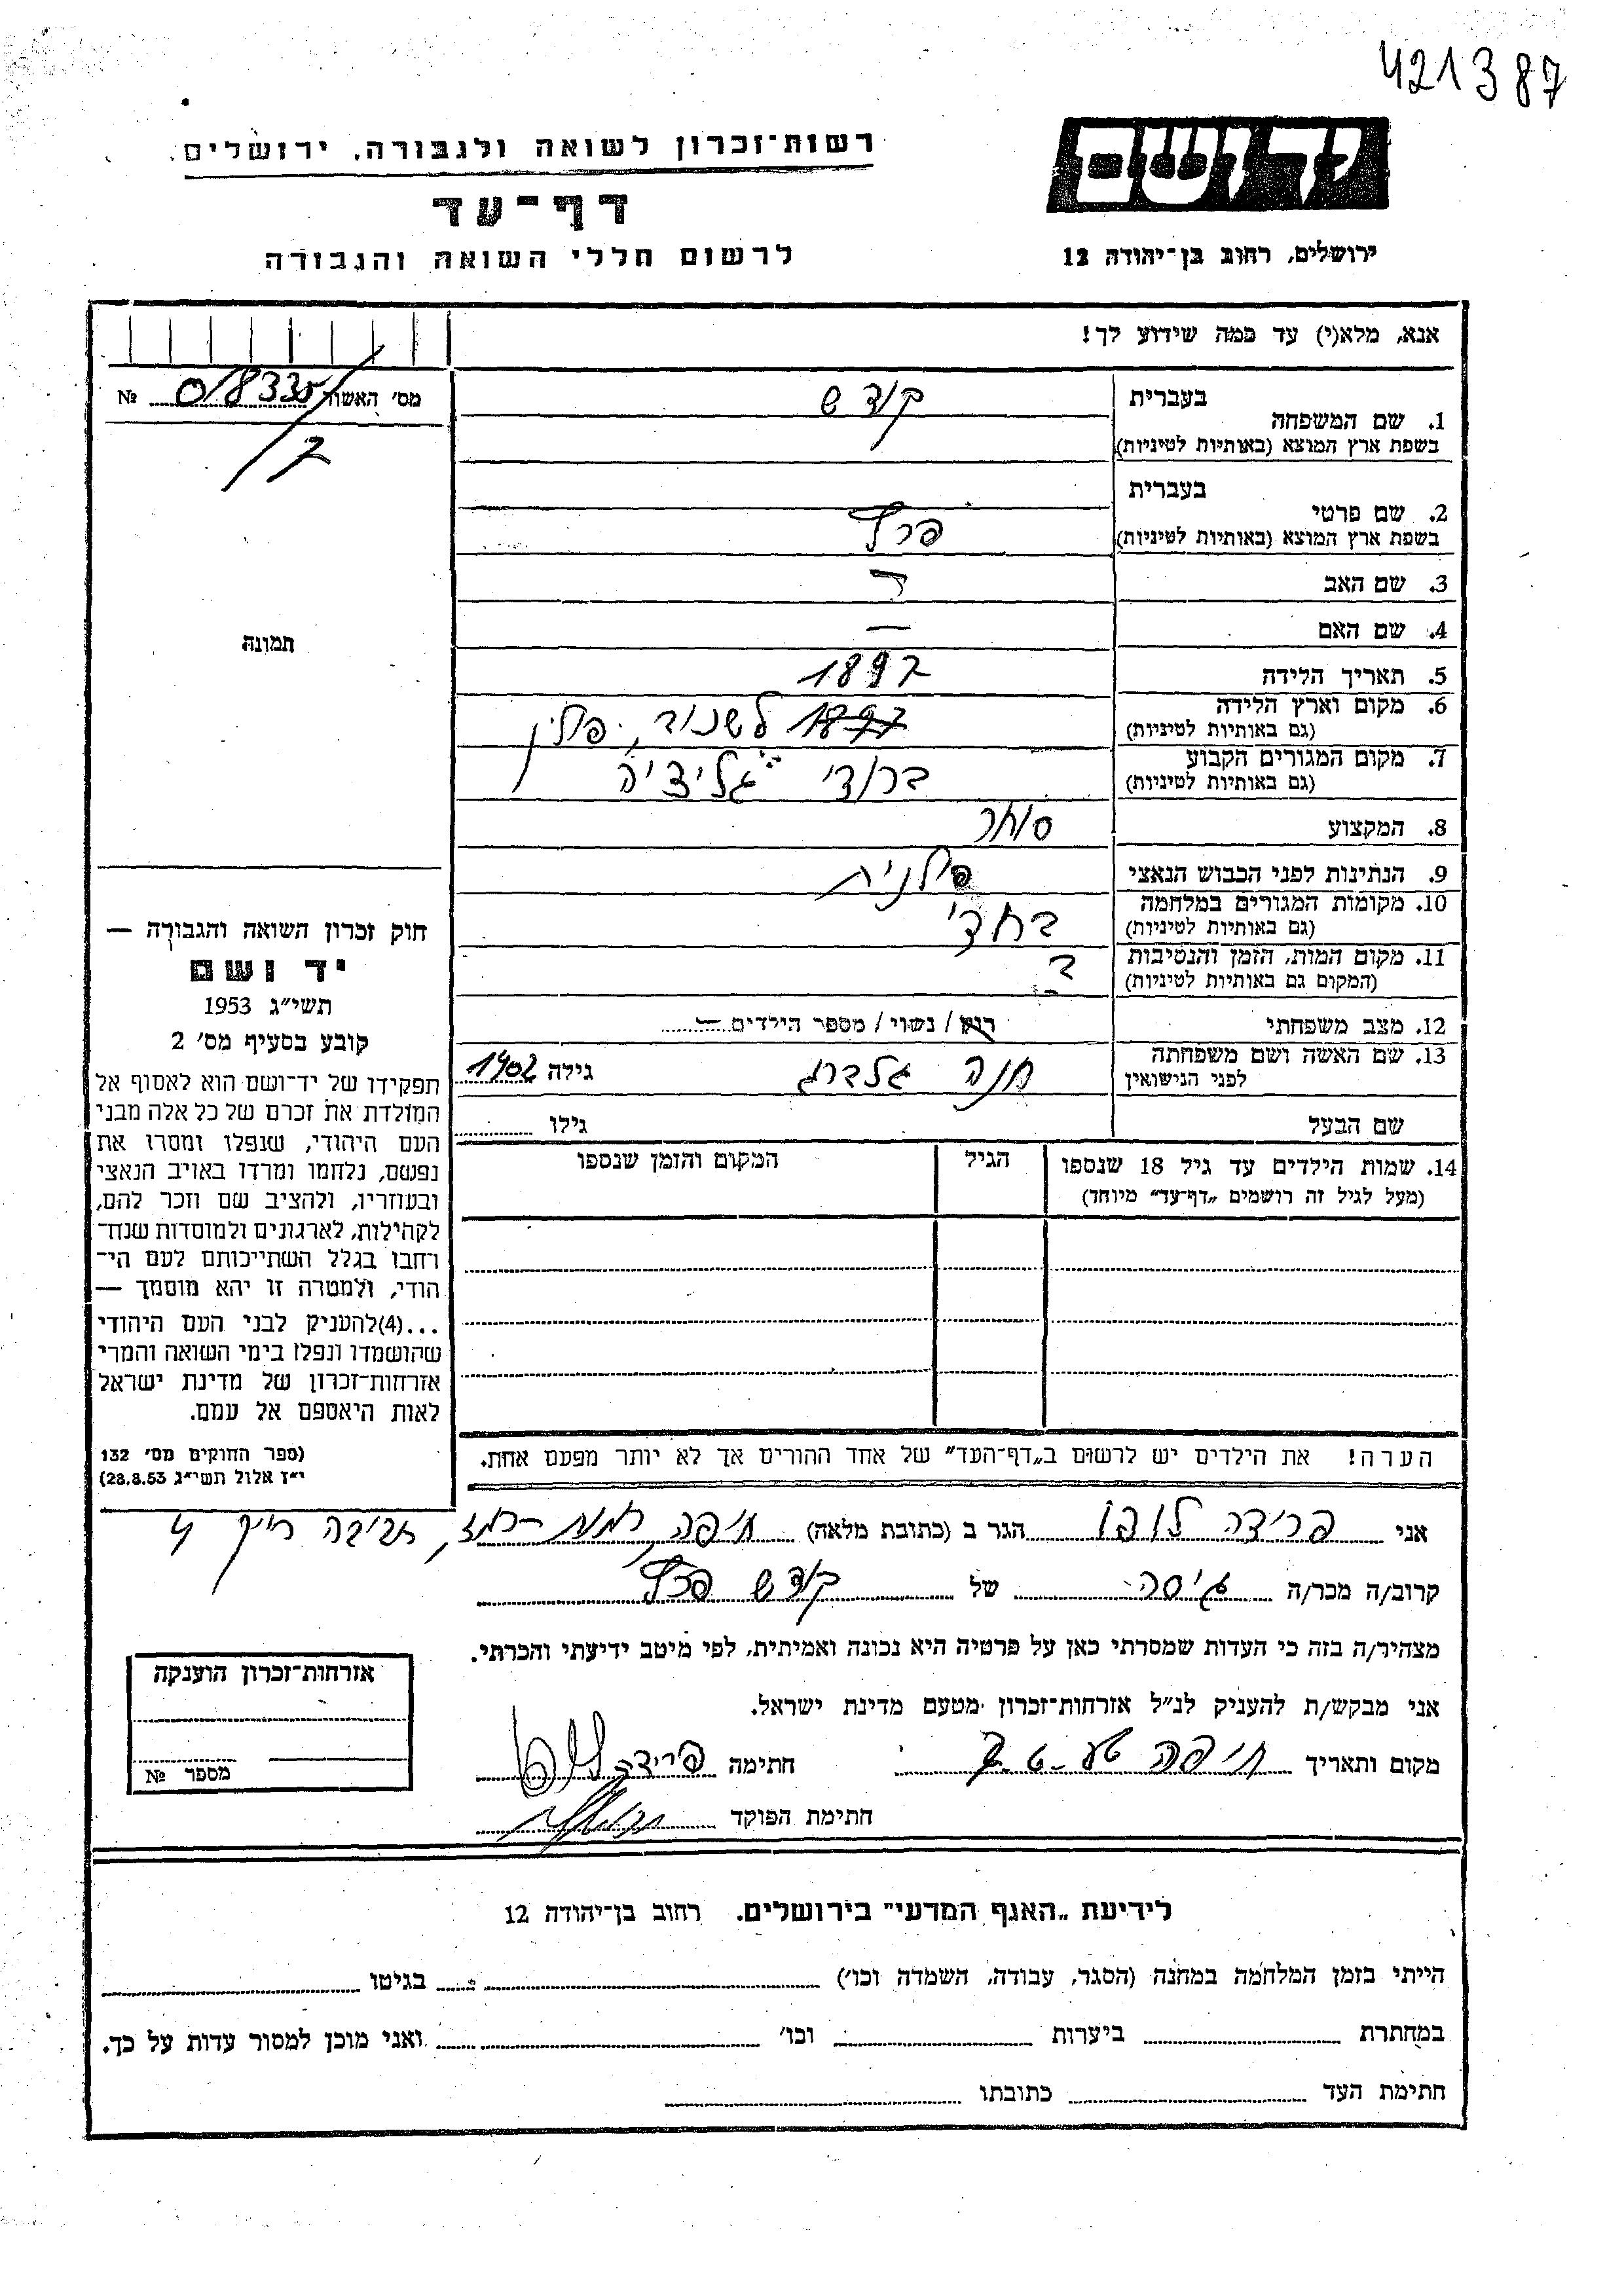 421387
רשות־זכרון לשואה ולגבורה, ירושלים.
דף־עד
לרשום חללי השואה והגבורה
יד ושם
ירושלים, רחוב בן־יהודה 12
אנא, מלא(י) עד כמה שידוע לך!
מס׳ האשור 018335 №
7
תמונה
חוק זכרון השואה והגבורה —
יד ושם
תשי״ג 1953
קובע בסעיף מס׳ 2
תפקידו של יד־ושם הוא לאסוף אל
המולדת את זכרם של כל אלה מבני
העם היהודי, שנפלו ומסרו את
נפשם, נלחמו ומרדו באויב הנאצי
ובעוזריו, ולהציב שם וזכר להם,
לקהילות, לארגונים ולמוסדות שנח־
רחבו בגלל השתייכותם לעם הי־
הודי, ולמטרה זו יהא מוסמך —
...(4)להעניק לבני העם היהודי
שהושמדו ונפלו בימי השואה והמרי
אזרחות־זכרון של מדינת ישראל
לאות היאספם אל עמם.
(ספר החוקים מס׳ 132
י״ז אלול תשי״ג 28.8.53)
בעברית קודש
1. שם המשפחה
בשפת ארץ המוצא (באותיות לטיניות)
בעברית
2. שם פרטי
בשפת ארץ המוצא (באותיות לטיניות)
3. שם האב
4. שם האם —
5. תאריך הלידה 1897
6. מקום וארץ הלידה 1897 פולין
(גם באותיות לטיניות)
7. מקום המגורים הקבוע ברודי גליציה
(גם באותיות לטיניות)
8. המקצוע סוחר
9. הנתינות לפני הכבוש הנאצי פולנית
10. מקומות המגורים במלחמה
(גם באותיות לטיניות)
11. מקום המות, הזמן והנסיבות
(המקום גם באותיות לטיניות)
12. מצב משפחתי רוק / נשוי / מספר הילדים —
13. שם האשה ושם משפחתה חנה גלברג גילה 1902
לפני הנישואין
שם הבעל גילו
14. שמות הילדים עד גיל 18 שנספו הגיל המקום והזמן שנספו
(מעל לגיל זה רושמים „דף־עד״ מיוחד)
הערה! את הילדים יש לרשום ב„דף־העד״ של אחד ההורים אך לא יותר מפעם אחת.
אני פרידה לופו הגר ב (כתובת מלאה) חיפה, רמת־רמז, חביבה רייק 4
קרוב/ה מכר/ה גיסה של קודש
מצהיר/ה בזה כי העדות שמסרתי כאן על פרטיה היא נכונה ואמיתית, לפי מיטב ידיעתי והכרתי.
אני מבקש/ת להעניק לנ״ל אזרחות־זכרון מטעם מדינת ישראל.
מקום ותאריך חיפה חתימה פרידה לופו
חתימת הפוקד
אזרחות־זכרון הוענקה
מספר №
לידיעת „האגף המדעי״ בירושלים. רחוב בן־יהודה 12
הייתי בזמן המלחמה במחנה (הסגר, עבודה, השמדה וכו׳) בגיטו
במחתרת ביערות וכו׳ ואני מוכן למסור עדות על כך.
חתימת העד כתובתו